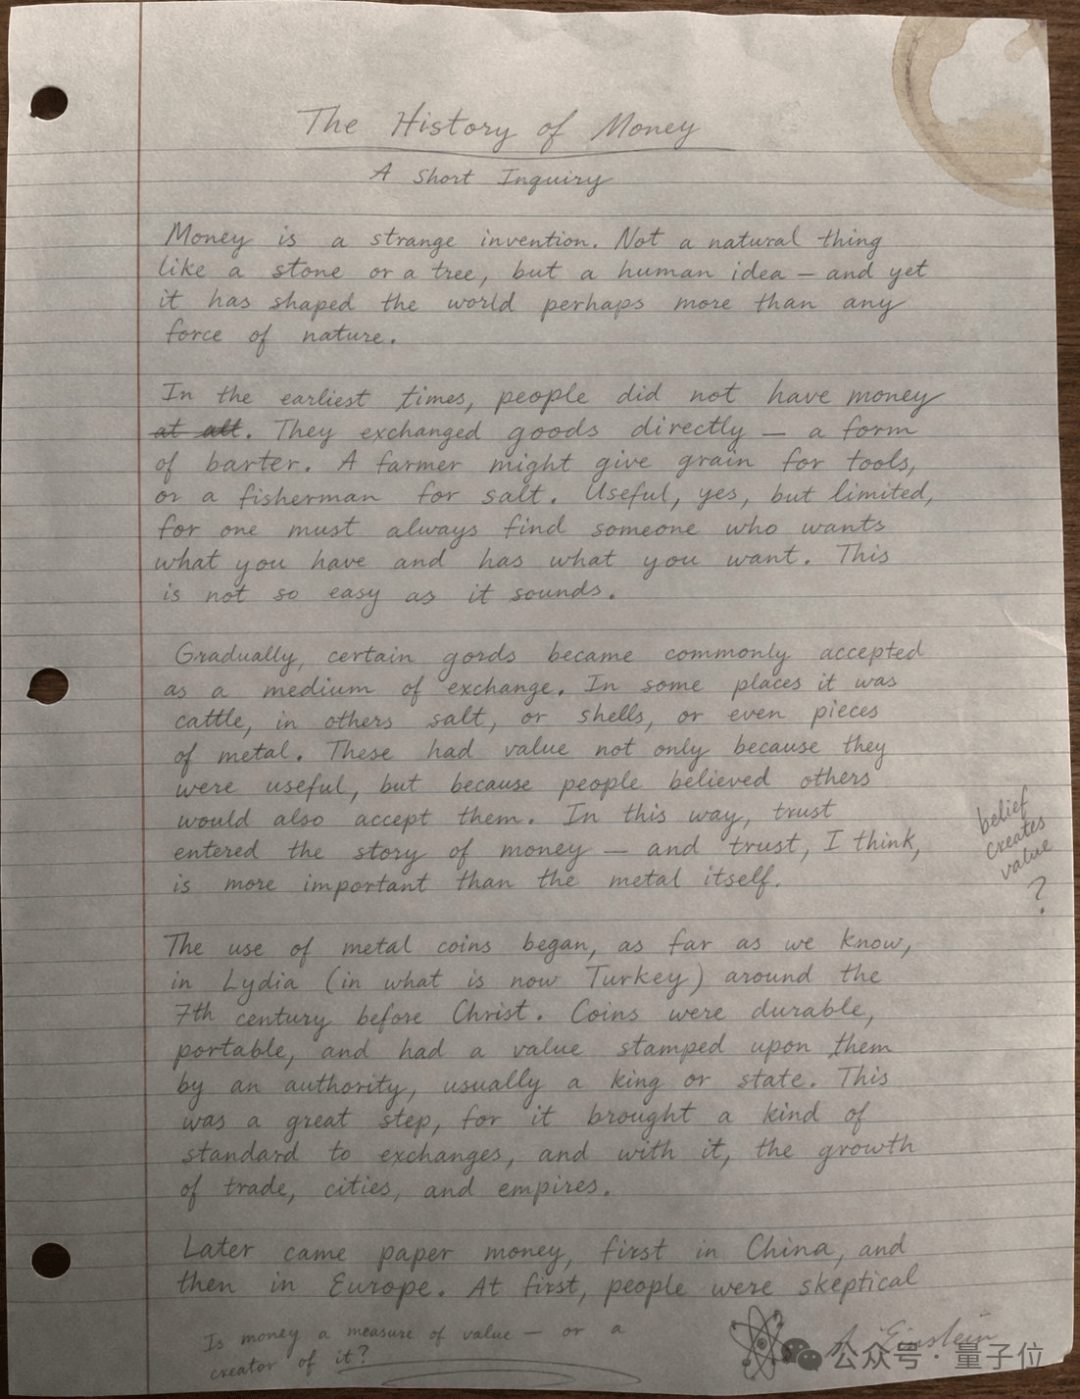 The History of Money
A Short Inquiry
Money is a strange invention. Not a natural thing
like a stone or a tree, but a human idea – and yet
it has shaped the world perhaps more than any
force of nature.
In the earliest times, people did not have money
at all. They exchanged goods directly – a form
of barter. A farmer might give grain for tools,
or a fisherman for salt. Useful, yes, but limited,
for one must always find someone who wants
what you have and has what you want. This
is not so easy as it sounds.
Gradually, certain goods became commonly accepted
as a medium of exchange. In some places it was
cattle, in others salt, or shells, or even pieces
of metal. These had value not only because they
were useful, but because people believed others
would also accept them. In this way, trust
entered the story of money – and trust, I think,
is more important than the metal itself.
belief
creates
value
?
The use of metal coins began, as far as we know,
in Lydia (in what is now Turkey) around the
7th century before Christ. Coins were durable,
portable, and had a value stamped upon them
by an authority, usually a king or state. This
was a great step, for it brought a kind of
standard to exchanges, and with it, the growth
of trade, cities, and empires.
Later came paper money, first in China, and
then in Europe. At first, people were skeptical
Is money a measure of value – or a
creator of it?
A. Einstein
公众号 · 量子位